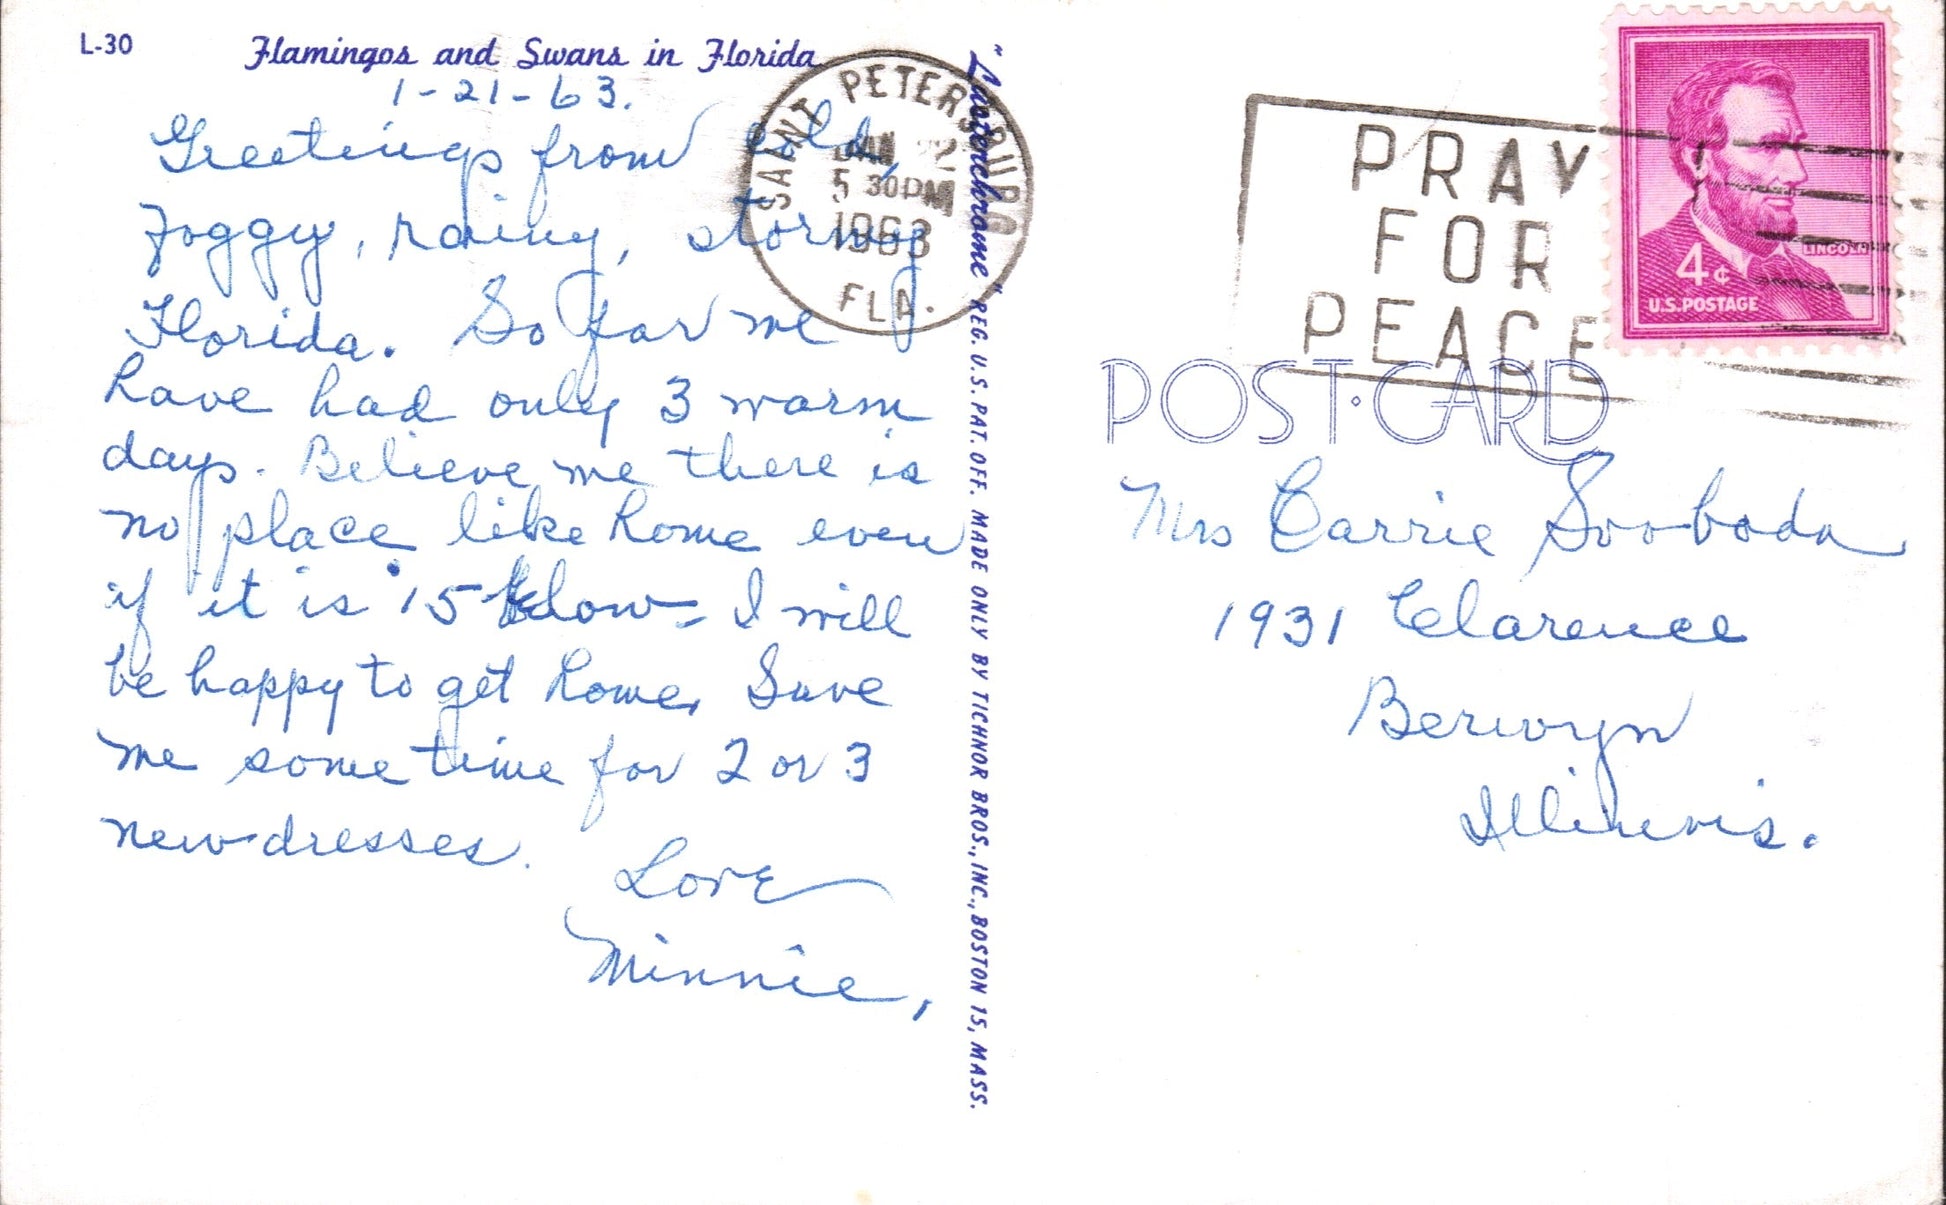 L-30
Flamingos and Swans in Florida
1-21-63.
Greetings from cold,
foggy, rainy, stormy
Florida. So far we
have had only 3 warm
days. Believe me there is
no place like home even
if it is 15 below - I will
be happy to get home. Save
me some time for 2 or 3
new dresses.
Love
Minnie,
SAINT PETERSBURG
JAN 22
5 30 PM
1963
FLA.
"Lusterchrome" REG. U.S. PAT. OFF. MADE ONLY BY TICHNOR BROS., INC., BOSTON 15, MASS.
PRAY
FOR
PEACE
LINCOLN
4¢
U.S. POSTAGE
POST·CARD
Mrs Carrie Svoboda
1931 Clarence
Berwyn
Illinois.